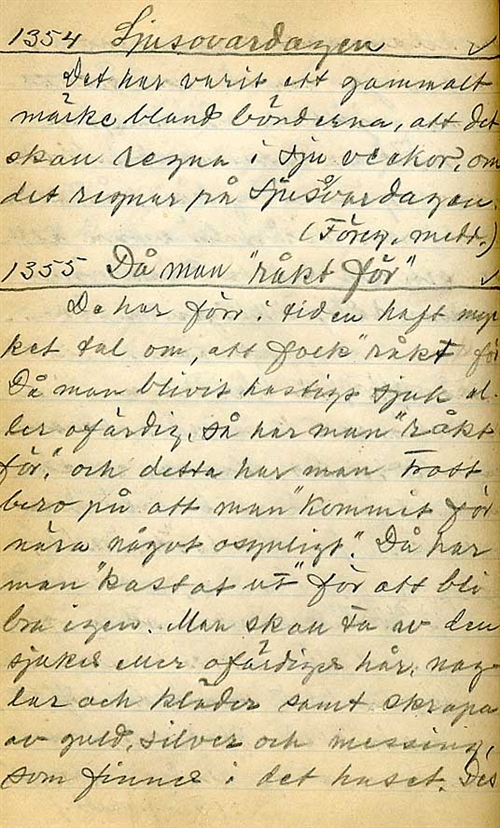 1354 Sjusovardagen
Det har varit ett gammalt
märke bland bönderna, att det
skall regna i sju veckor, om
det regnar på Sjusovardagen.
(Föreg. medd.)
1355 Då man "råkt för"
De har förr i tiden haft myc
ket tal om, att folk "råkt för
Då man blivit hastigt sjuk el-
ler ofärdig, så har man "råkt
för," och detta har man trott
bero på att man "kommit för
nära något osynligt." Då har
man "kastat ut" för att bli
bra igen. Man skall ta av den
sjukes eller ofärdiges hår, nag-
lar och kläder samt skrapa
av guld, silver och messing,
som finnes i det huset. Des